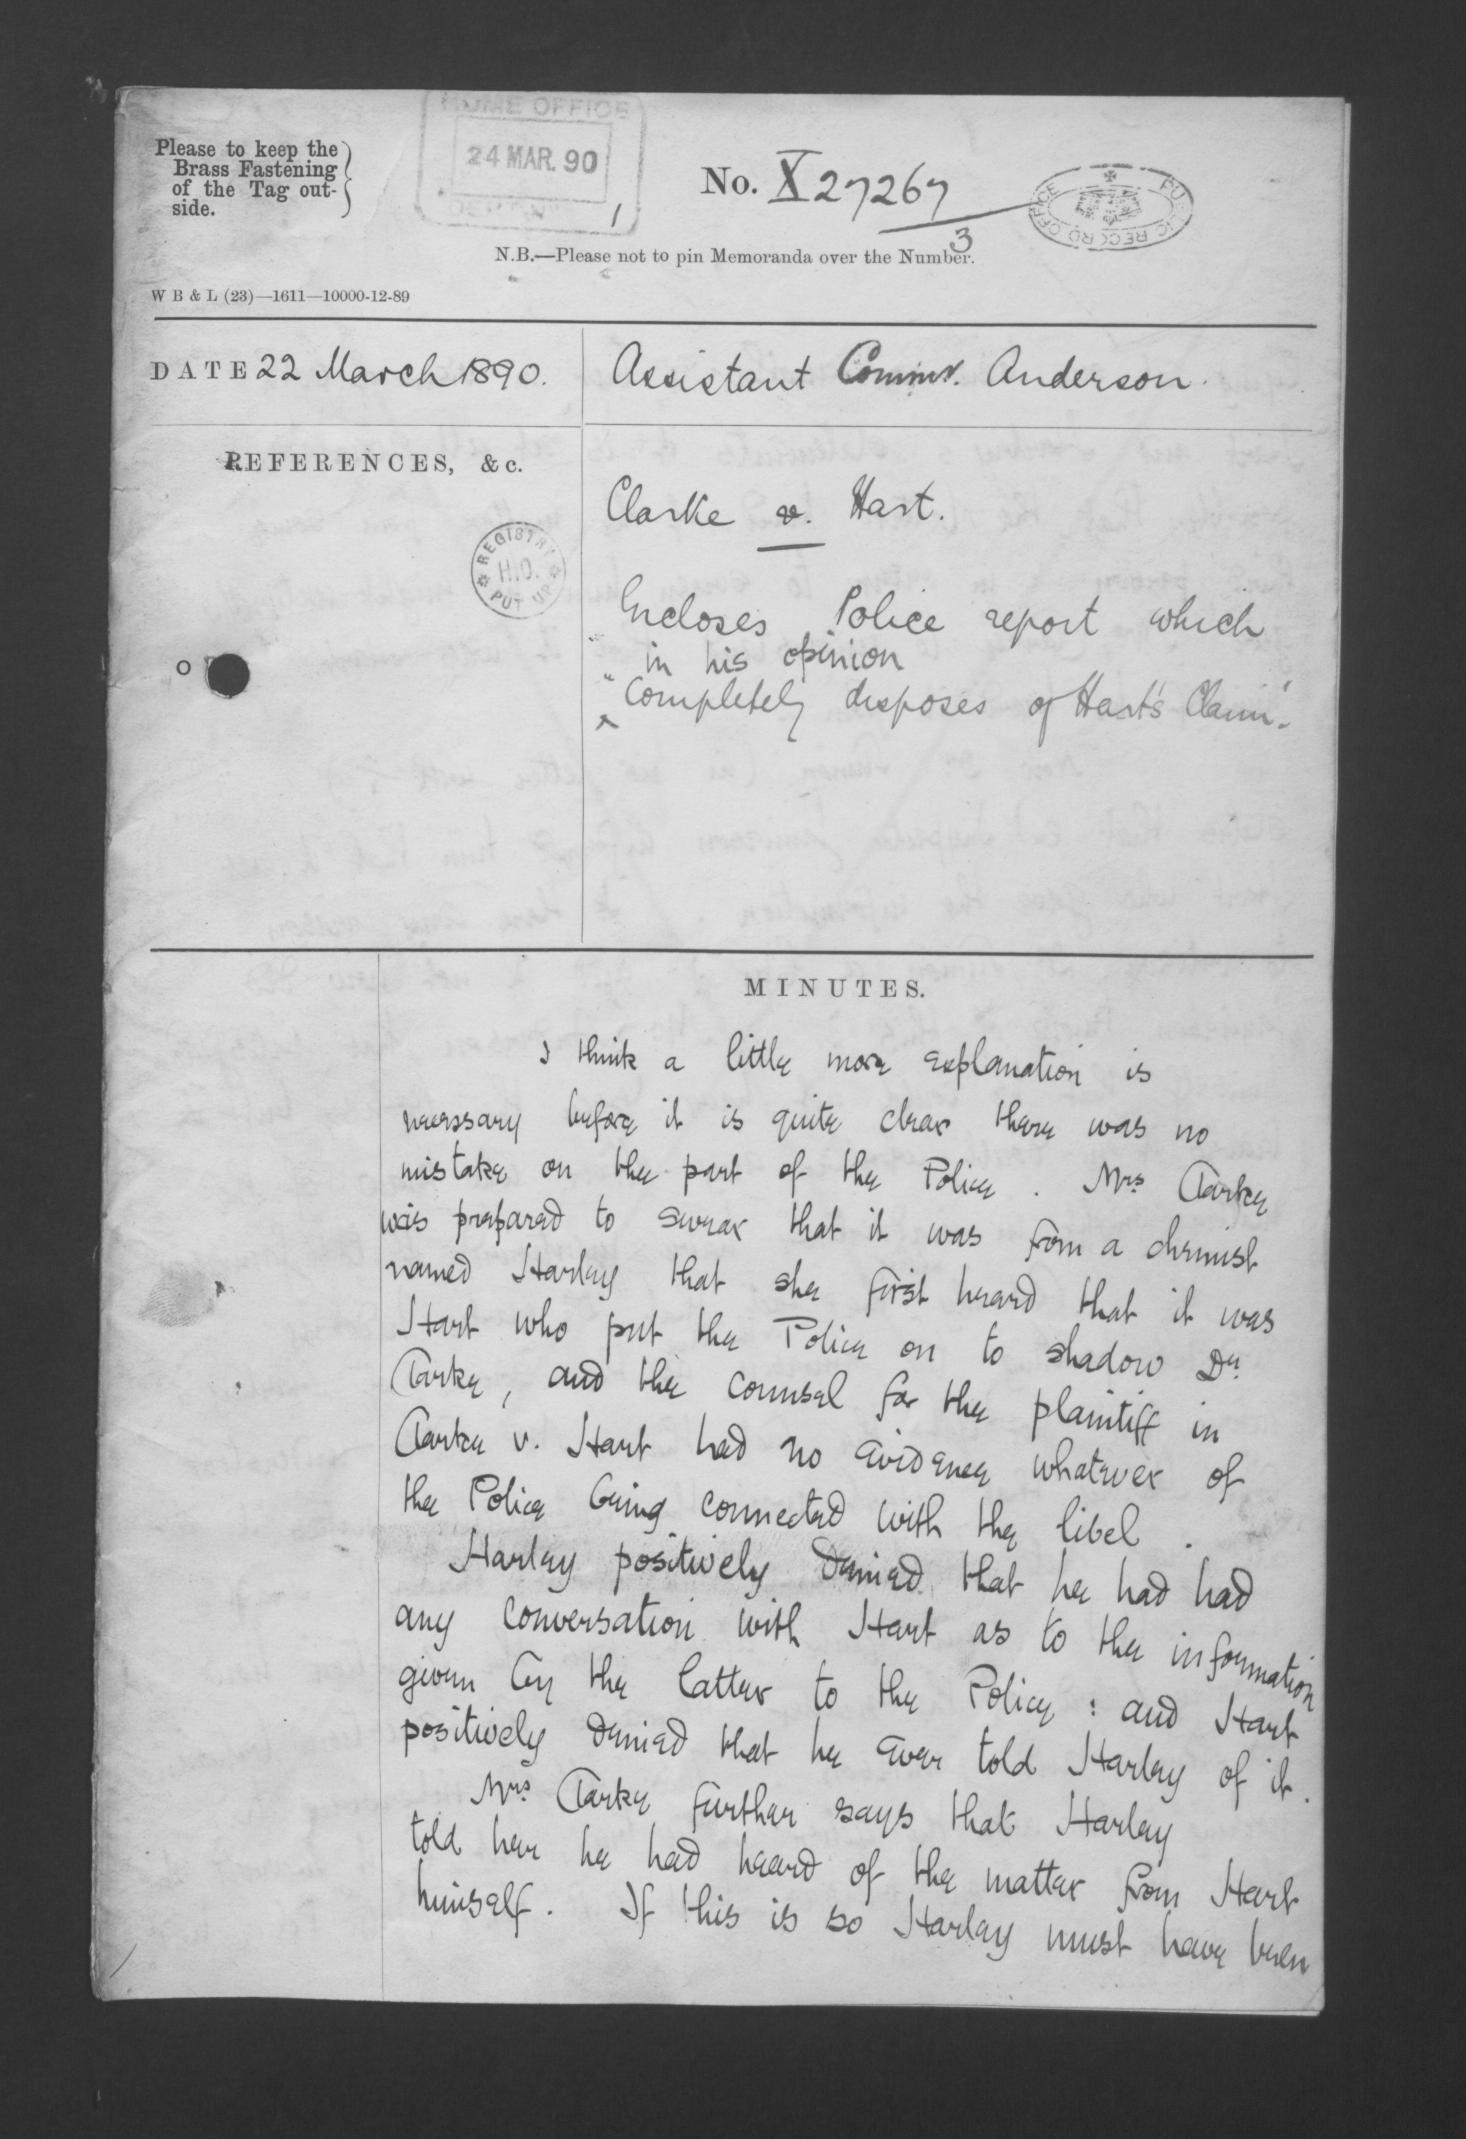 Please to keep the
Brass Fastening
of the Tag out-
side.
HOME OFFICE
24 MAR. 90
No. X27267
3
PUBLIC RECORD OFFICE
N.B.—Please not to pin Memoranda over the Number.
W B & L (23)—1611—10000-12-89
DATE 22 March 1890.
Assistant Commr. Anderson.
REFERENCES, &c.
REGISTRY
H.O.
PUT UP
Clarke v. Hart.
Encloses Police report which
in his opinion
"Completely disposes of Hart's Claim".
MINUTES.
I think a little more explanation is
necessary before it is quite clear there was no
mistake on the part of the Police. Mrs Clarke
was prepared to swear that it was from a chemist
named Harley that she first heard that it was
Hart who put the Police on to shadow Dr.
Clarke, and the counsel for the plaintiff in
Clarke v. Hart had no evidence whatever of
the Police being connected with the libel.
Harley positively denied that he had had
any conversation with Hart as to the information
given by the latter to the Police: and Hart
positively denied that he ever told Harley of it.
Mrs Clarke further says that Harley
told her he had heard of the matter from Hart
himself. If this is so Harley must have been